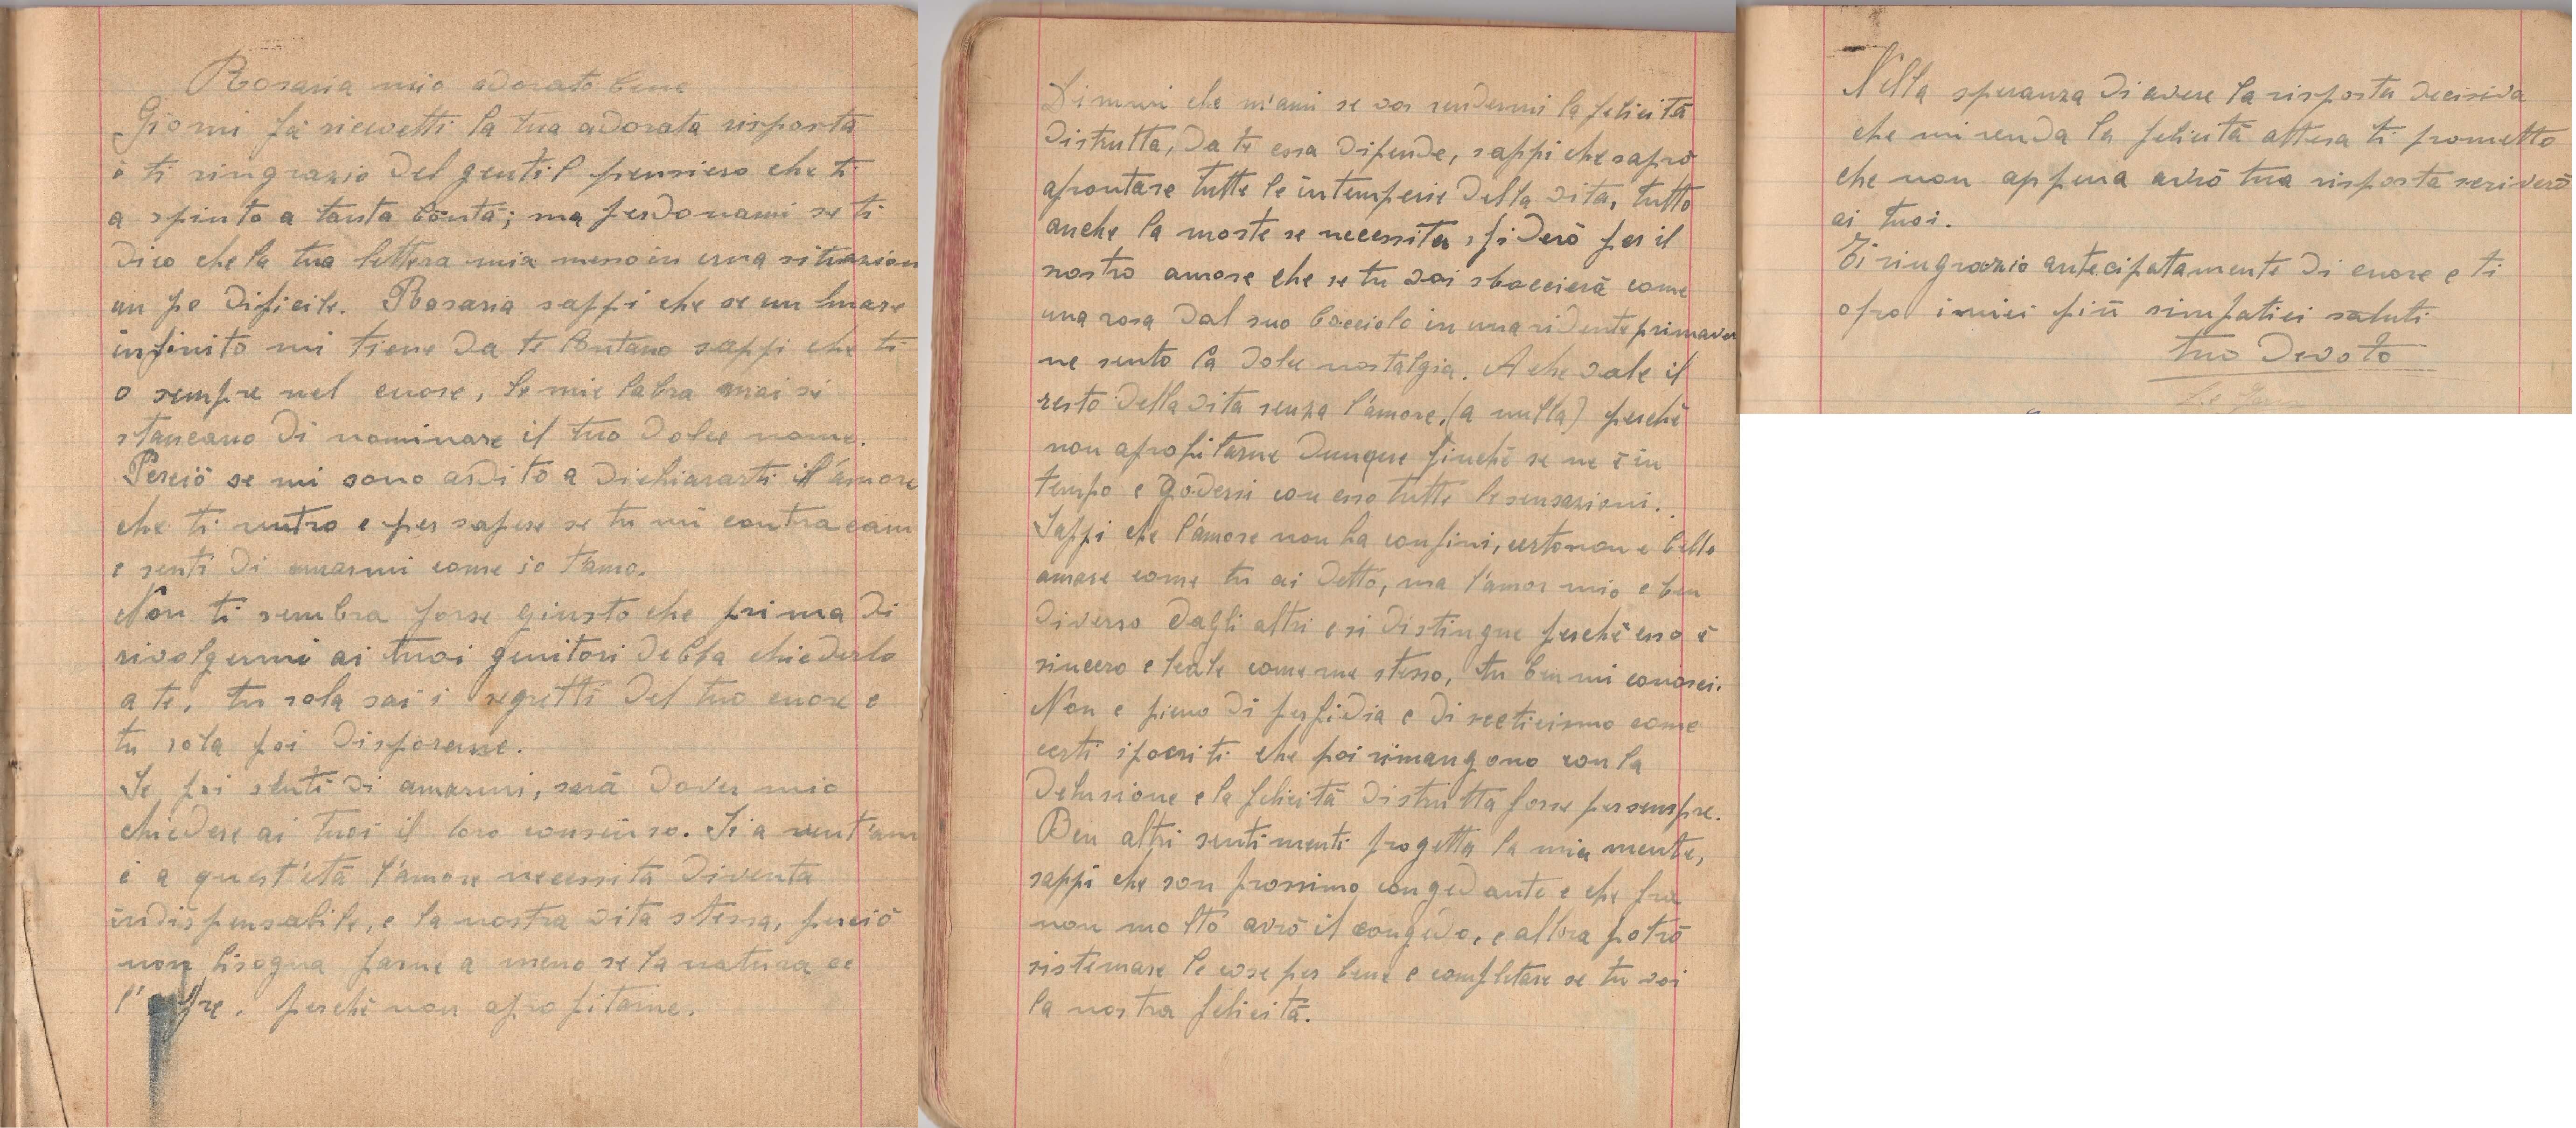 Rosaria mio adorato bene
Giorni fà ricevetti la tua adorata risposta
è ti ringrazio del gentil pensiero che ti
a spinto a tanta bontà; ma perdonami se ti
dico che la tua lettera mia messo in una situazion
un po dificile. Rosaria sappi che se un mare
infinito mi tiene da te lontano sappi che ti
o sempre nel cuore, le mie labra mai si
stancano di nominare il tuo dolce nome.
Perciò se mi sono ardito a dichiararti il amore
che ti nutro e per sapere se tu mi contracam
e senti di amarmi come io t'amo.
Non ti sembra forse giusto che prima di
rivolgermi ai tuoi genitori debba chiederlo
a te, tu sola sai i segretti del tuo cuore e
tu sola poi disporene.
Se poi senti di amarmi, sarà dover mio
chiedere ai tuoi il loro consenso. Si a vent'ann
è a quest'età l'amore necessita diventa
indispensabile, e la nostra vita stessa, perciò
non bisogna farne a meno se la natura ce
l' fre, perchè non aprofitarne.
Dimmi che m'ami se vos rendermi la felicità
distrutta, da te essa dipende, sappi che saprò
afrontare tutte le intemperie della vita, tutto
anche la morte se necessita sfiderò per il
nostro amore che se tu voi sboccierà come
una rosa dal suo bocciolo in una ridente primaver
ne sento la dolce nostalgia. A che vale il
resto della vita senza l'amore, (a nulla) perchè
non aprofitarne dunque finchè se ne è in
tempo e godersi con esso tutte le sensazioni.
Sappi che l'amore non ha confini, certo non e bello
amare come tu ai detto, ma l'amor mio e ben
diverso dagli altri e si distingue perchè esso è
sincero e leale come me stesso, tu ben mi conosci.
Non e pieno di perfidia e di scetticismo come
certi ipocriti che poi rimangono con la
delusione e la felicità distrutta forse per sempre.
Ben altri sentimenti progetta la mia mente,
sappi che son prossimo congedante e che fra
non molto avrò il congedo, e allora potrò
sistemare le cose per bene e completare se tu voi
la nostra felicità.
Nella speranza di avere la risposta decisiva
che mi renda la felicità attesa ti prometto
che non appena avrò tua risposta scriverò
ai tuoi.
Ti ringrazio antecipatamente di cuore e ti
ofro i miei più simpatici saluti
tuo devoto